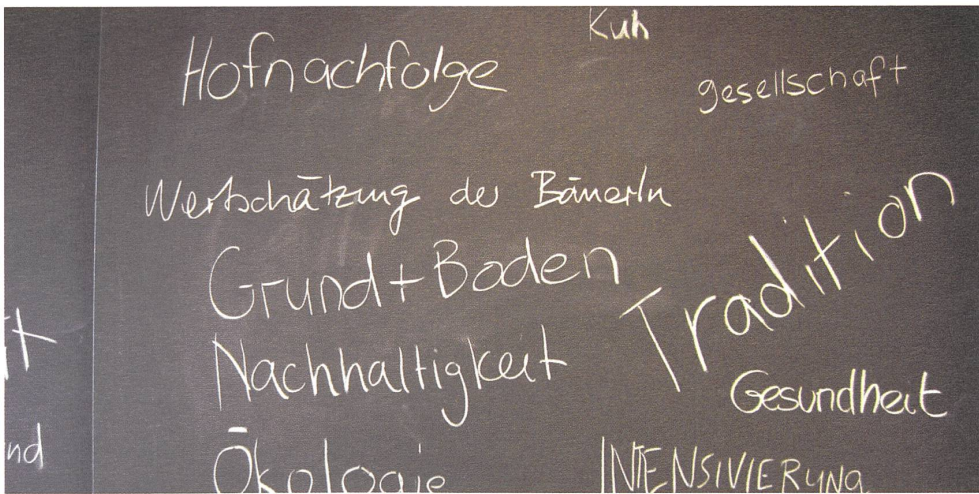 Kuh
Hofnachfolge
gesellschaft
Wertschätzung der Bäuerin
Grund + Boden
Tradition
Nachhaltigkeit
Gesundheit
nd
Ökologie
INTENSIVIERUNG